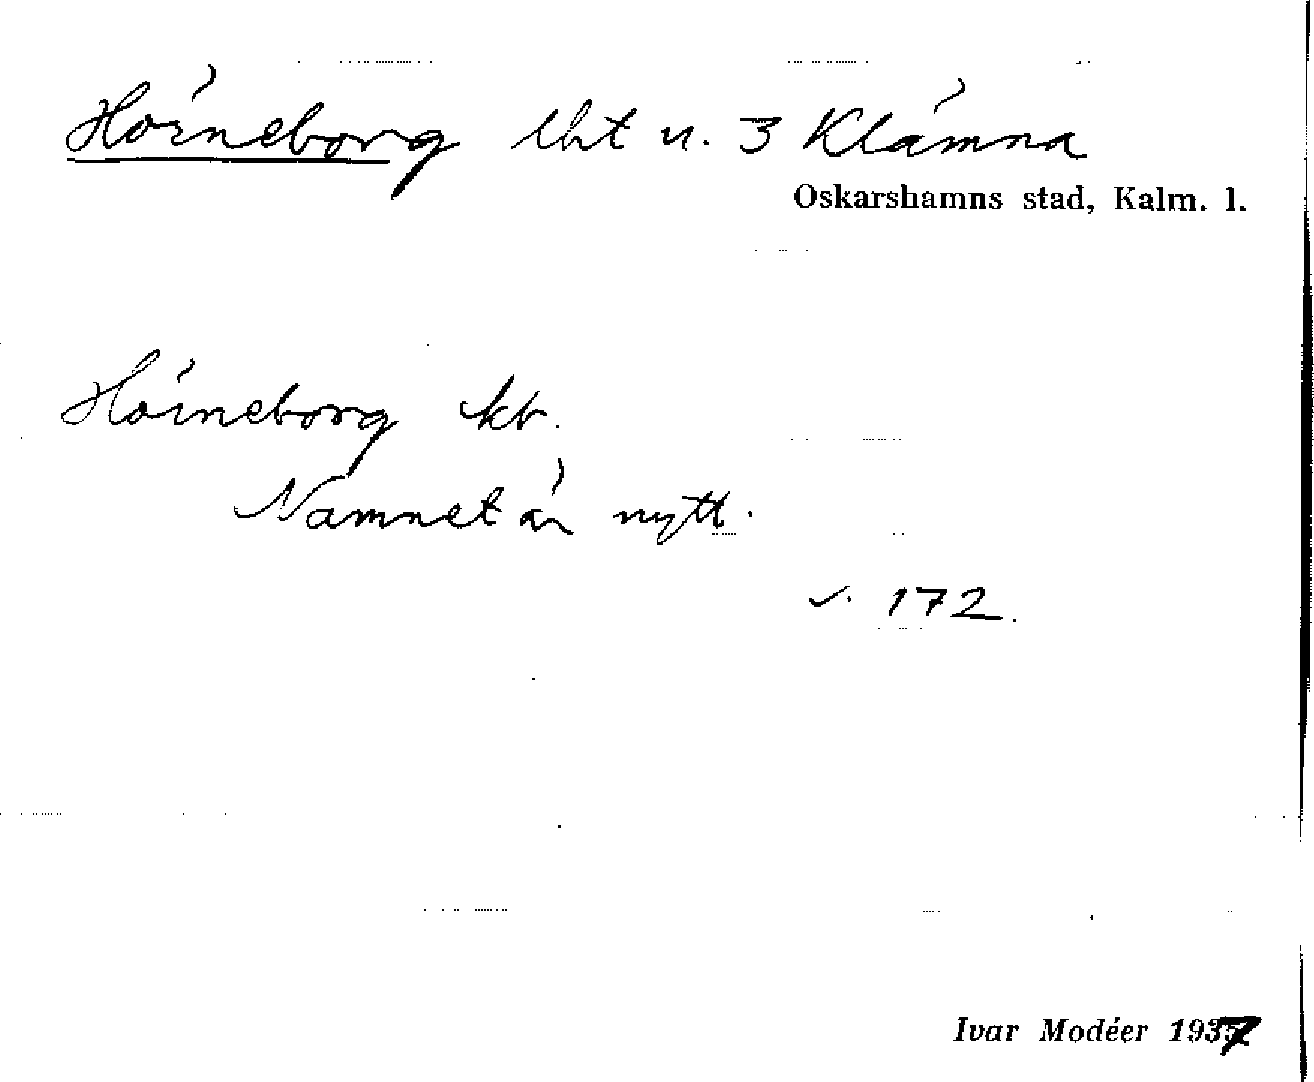 Hörneborg lht u. 3 Klämna
Oskarshamns stad, Kalm. l.
Hörneborg kb.
Namnet är nytt.
s. 172.
Ivar Modéer 1937